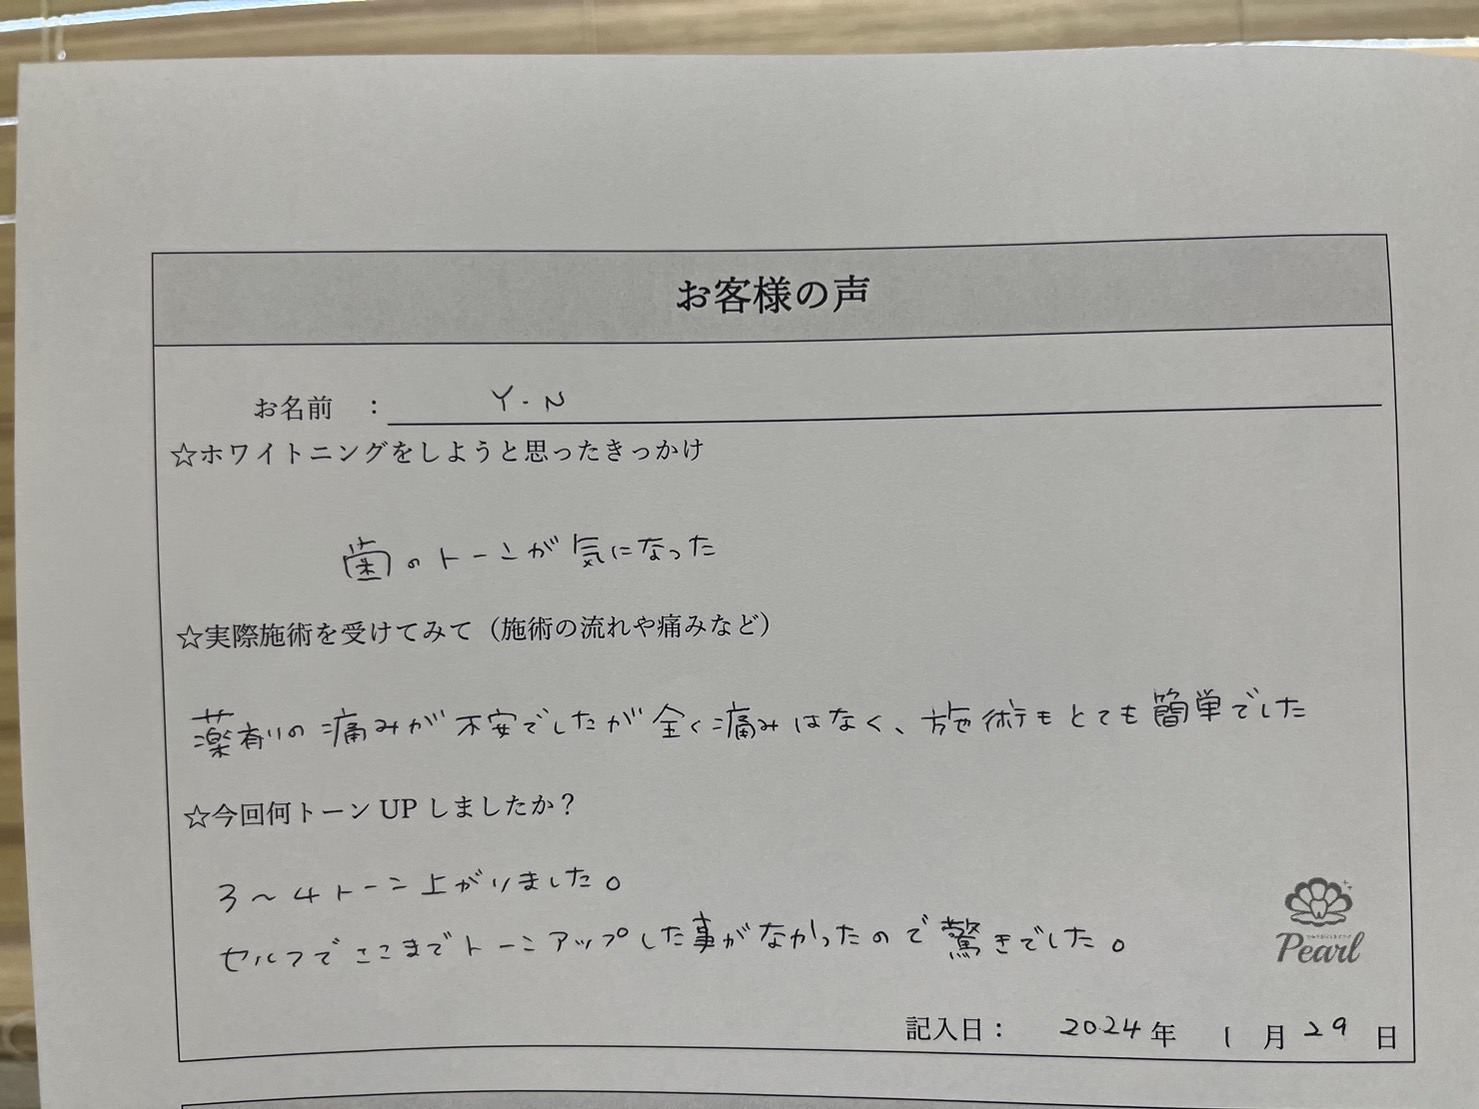 お客様の声
お名前 : Y.N
☆ホワイトニングをしようと思ったきっかけ
歯のトーンが気になった
☆実際施術を受けてみて（施術の流れや痛みなど）
薬剤の痛みが不安でしたが全く痛みはなく、施術もとても簡単でした
☆今回何トーン UP しましたか？
3～4トーン上がりました。
セルフでここまでトーンアップした事がなかったので驚きでした。
Pearl
記入日： 2024年 1月 29日